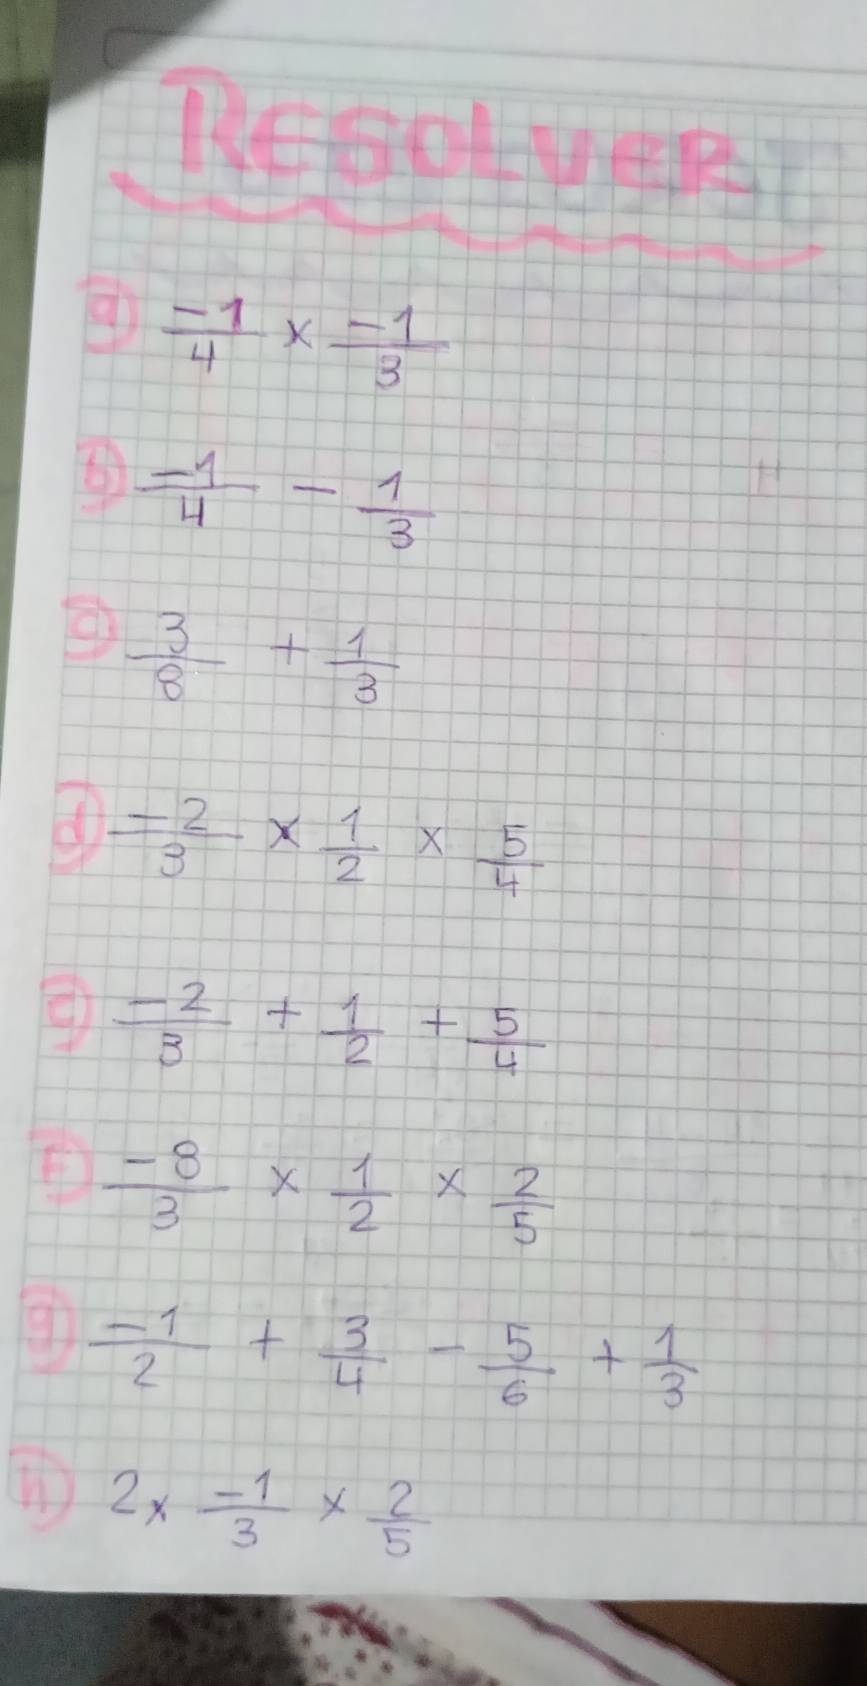 RESOLVER
a) -1/4 x -1/3
b) -1/4 - 1/3
c) 3/8 + 1/3
d) -2/3 x 1/2 x 5/4
e) -2/3 + 1/2 + 5/4
f) -8/3 x 1/2 x 2/5
g) -1/2 + 3/4 - 5/6 + 1/3
h) 2 x -1/3 x 2/5